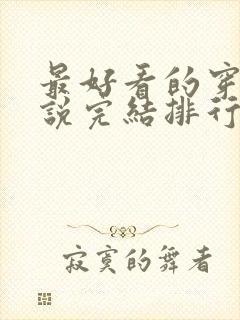 最好看的穿
說完結排行
寂寞的舞者